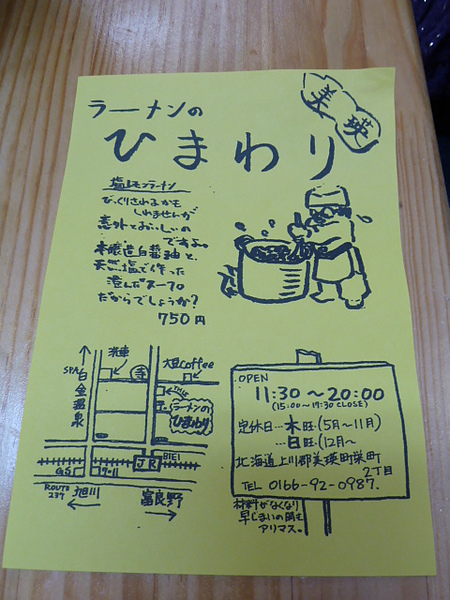 美瑛
ラーメンの
ひまわり
塩レモンラーメン
びっくりされるかも
しれませんが
意外とおいしいの
ですよ。
本醸造白醤油と、
天然塩で作った
澄んだスープ
だからでしょうか?
750円
洗車
寺
大豆Coffee
SPA
白金温泉
ラーメンの
ひまわり
JR
BIEI
GS
7-11
ROUTE
237
旭川
富良野
OPEN
11:30〜20:00
(15:00〜17:30 CLOSE)
定休日…木曜(5月〜11月)
…日曜(12月〜
北海道上川郡美瑛町栄町
2丁目
TEL 0166-92-0987.
材料がなくなり
早じまいの日も
アリマス。